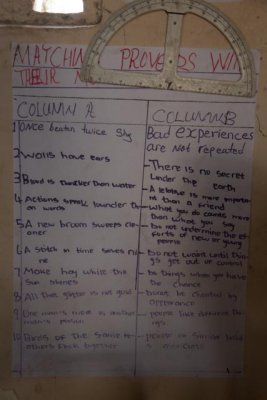 MATCHING PROVERBS WI
THEIR
COLUMN A
1 Once beaten twice shy
2 Walls have ears
3 Blood is thicker than water
4 Actions speak louder
on words
5 A new broom sweeps cle
aner
6 A stitch in time saves ni
ne
7 Make hay while the
sun shines
8 All that glitter is not gold
9 One man's meat is another
man's poison
10 Birds of the same fe
athers flock together
COLUMN B
Bad experiences
are not repeated
There is no secret
under the earth
A relative is more import
ant than a friend
What you do counts more
than what you say
Do not undermine the ef
forts of new or young
people
Do not wait until things
get out of control
Do things when you have
the chance
Do not be cheated by
appearance
people like different thi
ngs
people